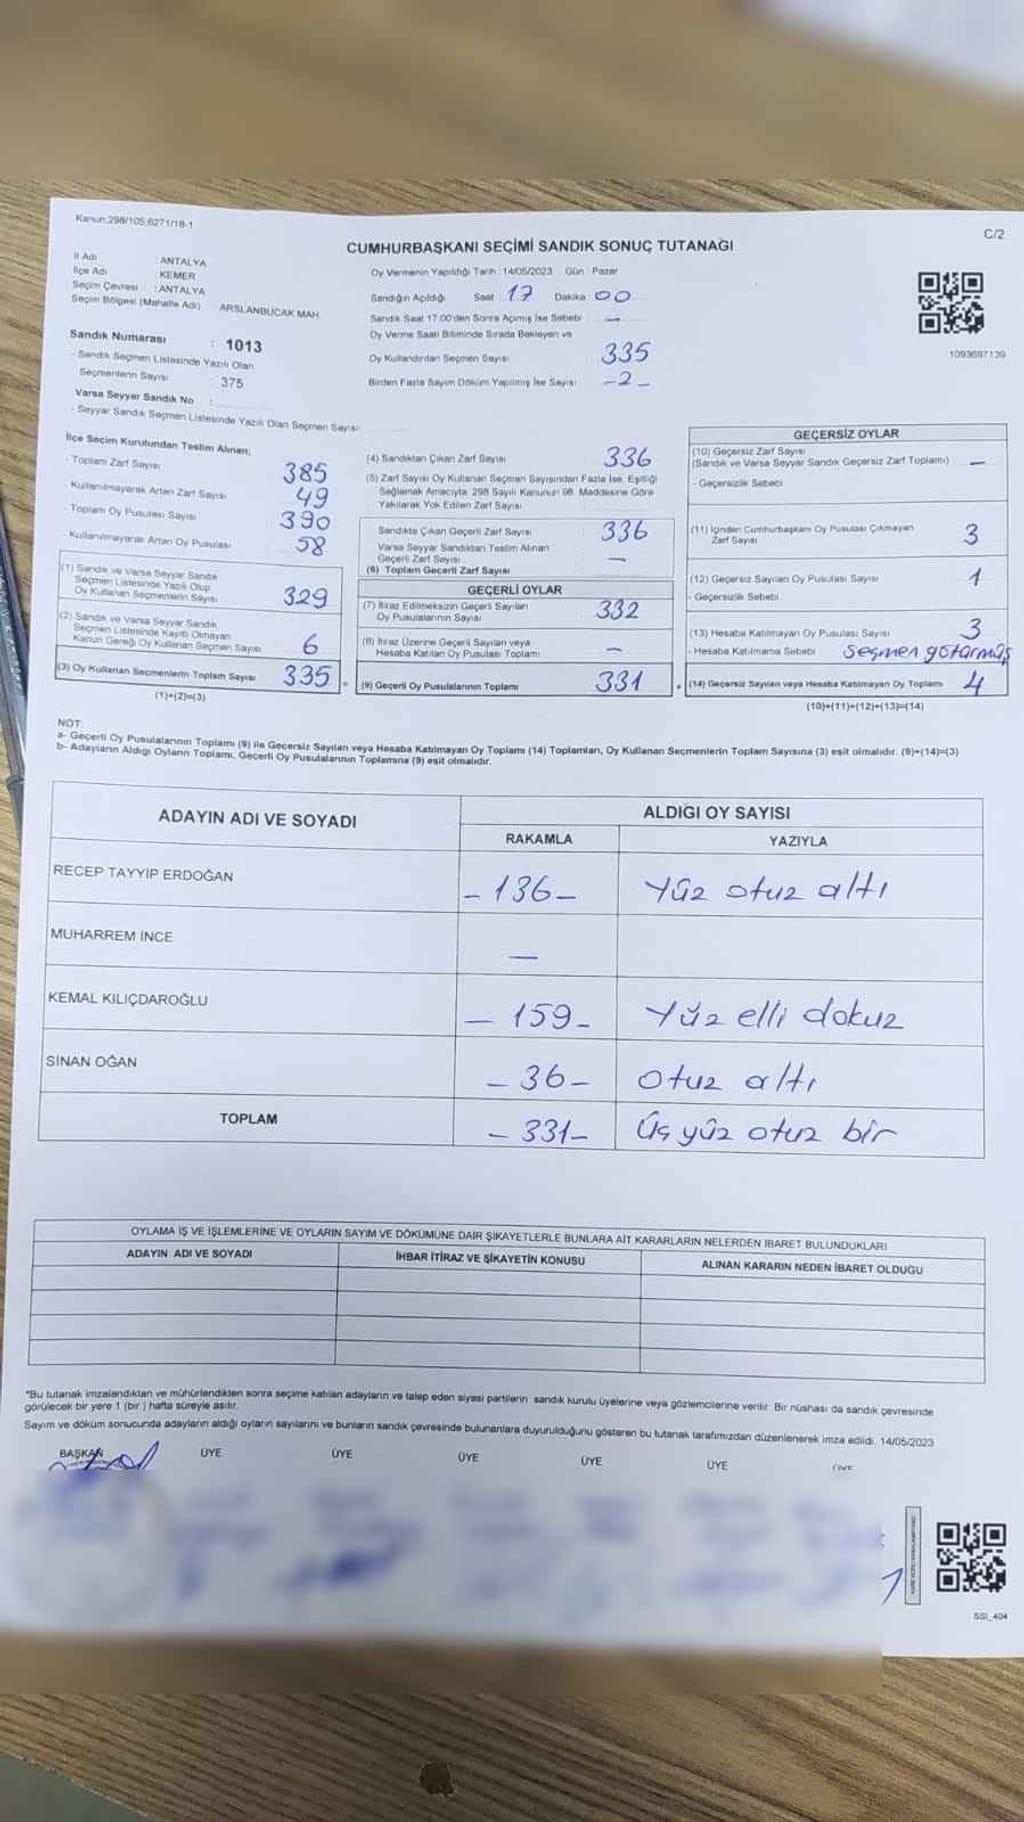 Kanun:298/105;6271/18-1
C/2
CUMHURBAŞKANI SEÇİMİ SANDIK SONUÇ TUTANAĞI
İl Adı : ANTALYA
İlçe Adı : KEMER
Seçim Çevresi : ANTALYA
Seçim Bölgesi (Mahalle Adı) ARSLANBUCAK MAH.
Sandık Numarası : 1013
- Sandık Seçmen Listesinde Yazılı Olan
Seçmenlerin Sayısı : 375
Varsa Seyyar Sandık No :
- Seyyar Sandık Seçmen Listesinde Yazılı Olan Seçmen Sayısı
Oy Vermenin Yapıldığı Tarih : 14/05/2023 Gün : Pazar
Sandığın Açıldığı Saat : 17 Dakika : 00
Sandık Saat 17:00'den Sonra Açılmış İse Sebebi : —
Oy Verme Saati Bitiminde Sırada Bekleyen ve
Oy Kullandırılan Seçmen Sayısı 335
Birden Fazla Sayım Döküm Yapılmış İse Sayısı -2-
1093697139
İlçe Seçim Kurulundan Teslim Alınan;
- Toplam Zarf Sayısı 385
- Kullanılmayarak Artan Zarf Sayısı 49
- Toplam Oy Pusulası Sayısı 390
- Kullanılmayarak Artan Oy Pusulası 58
(1) Sandık ve Varsa Seyyar Sandık
Seçmen Listesinde Yazılı Olup
Oy Kullanan Seçmenlerin Sayısı 329
(2) Sandık ve Varsa Seyyar Sandık
Seçmen Listesinde Kayıtlı Olmayan
Kanun Gereği Oy Kullanan Seçmen Sayısı 6
(3) Oy Kullanan Seçmenlerin Toplam Sayısı 335 =
(1)+(2)=(3)
(4) Sandıktan Çıkan Zarf Sayısı 336
(5) Zarf Sayısı Oy Kullanan Seçmen Sayısından Fazla İse, Eşitliği
Sağlamak Amacıyla 298 Sayılı Kanunun 98. Maddesine Göre
Yakılarak Yok Edilen Zarf Sayısı
Sandıkta Çıkan Geçerli Zarf Sayısı 336
Varsa Seyyar Sandıktan Teslim Alınan
Geçerli Zarf Sayısı —
(6) Toplam Geçerli Zarf Sayısı
GEÇERLİ OYLAR
(7) İtiraz Edilmeksizin Geçerli Sayılan
Oy Pusulalarının Sayısı 332
(8) İtiraz Üzerine Geçerli Sayılan veya
Hesaba Katılan Oy Pusulası Toplamı —
(9) Geçerli Oy Pusulalarının Toplamı 331 +
GEÇERSİZ OYLAR
(10) Geçersiz Zarf Sayısı
(Sandık ve Varsa Seyyar Sandık Geçersiz Zarf Toplamı) —
- Geçersizlik Sebebi
(11) İçinden Cumhurbaşkanı Oy Pusulası Çıkmayan
Zarf Sayısı 3
(12) Geçersiz Sayılan Oy Pusulası Sayısı 1
- Geçersizlik Sebebi
(13) Hesaba Katılmayan Oy Pusulası Sayısı 3
- Hesaba Katılmama Sebebi seçmen götürmüş
(14) Geçersiz Sayılan veya Hesaba Katılmayan Oy Toplamı 4
(10)+(11)+(12)+(13)=(14)
NOT:
a- Geçerli Oy Pusulalarının Toplamı (9) ile Geçersiz Sayılan veya Hesaba Katılmayan Oy Toplamı (14) Toplamları, Oy Kullanan Seçmenlerin Toplam Sayısına (3) eşit olmalıdır. (9)+(14)=(3)
b- Adayların Aldığı Oyların Toplamı, Geçerli Oy Pusulalarının Toplamına (9) eşit olmalıdır.
ADAYIN ADI VE SOYADI ALDIĞI OY SAYISI
RAKAMLA YAZIYLA
RECEP TAYYİP ERDOĞAN -136- Yüz otuz altı
MUHARREM İNCE —
KEMAL KILIÇDAROĞLU -159- Yüz elli dokuz
SİNAN OĞAN -36- otuz altı
TOPLAM -331- Üçyüz otuz bir
OYLAMA İŞ VE İŞLEMLERİNE VE OYLARIN SAYIM VE DÖKÜMÜNE DAİR ŞİKAYETLERLE BUNLARA AİT KARARLARIN NELERDEN İBARET BULUNDUKLARI
ADAYIN ADI VE SOYADI İHBAR İTİRAZ VE ŞİKAYETİN KONUSU ALINAN KARARIN NEDEN İBARET OLDUĞU
*Bu tutanak imzalandıktan ve mühürlendikten sonra seçime katılan adayların ve talep eden siyasi partilerin sandık kurulu üyelerine veya gözlemcilerine verilir. Bir nüshası da sandık çevresinde
görülecek bir yere 1 (bir) hafta süreyle asılır.
Sayım ve döküm sonucunda adayların aldığı oyların sayılarını ve bunların sandık çevresinde bulunanlara duyurulduğunu gösteren bu tutanak tarafımızdan düzenlenerek imza edildi. 14/05/2023
BAŞKAN ÜYE ÜYE ÜYE ÜYE ÜYE ÜYE
SSI_404